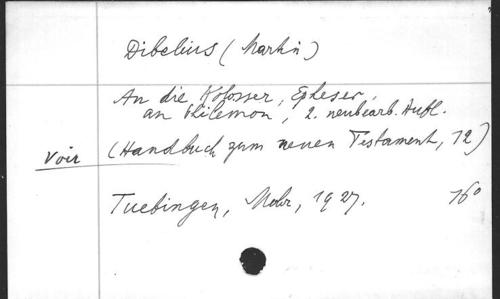 Dibelius (Martin)
An die Kolosser, Epheser,
an Philemon, 2. neubearb. Aufl.
Voir (Handbuch zum neuen Testament, 12)
Tuebingen, Mohr, 1927. 16°